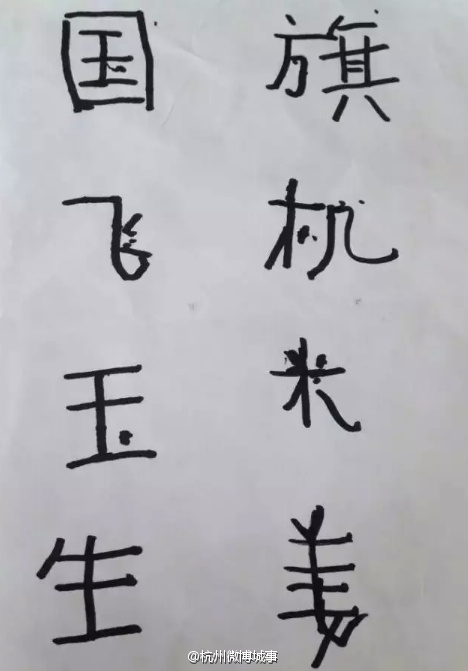 国旗
飞机
玉米
生姜
@杭州微博城事